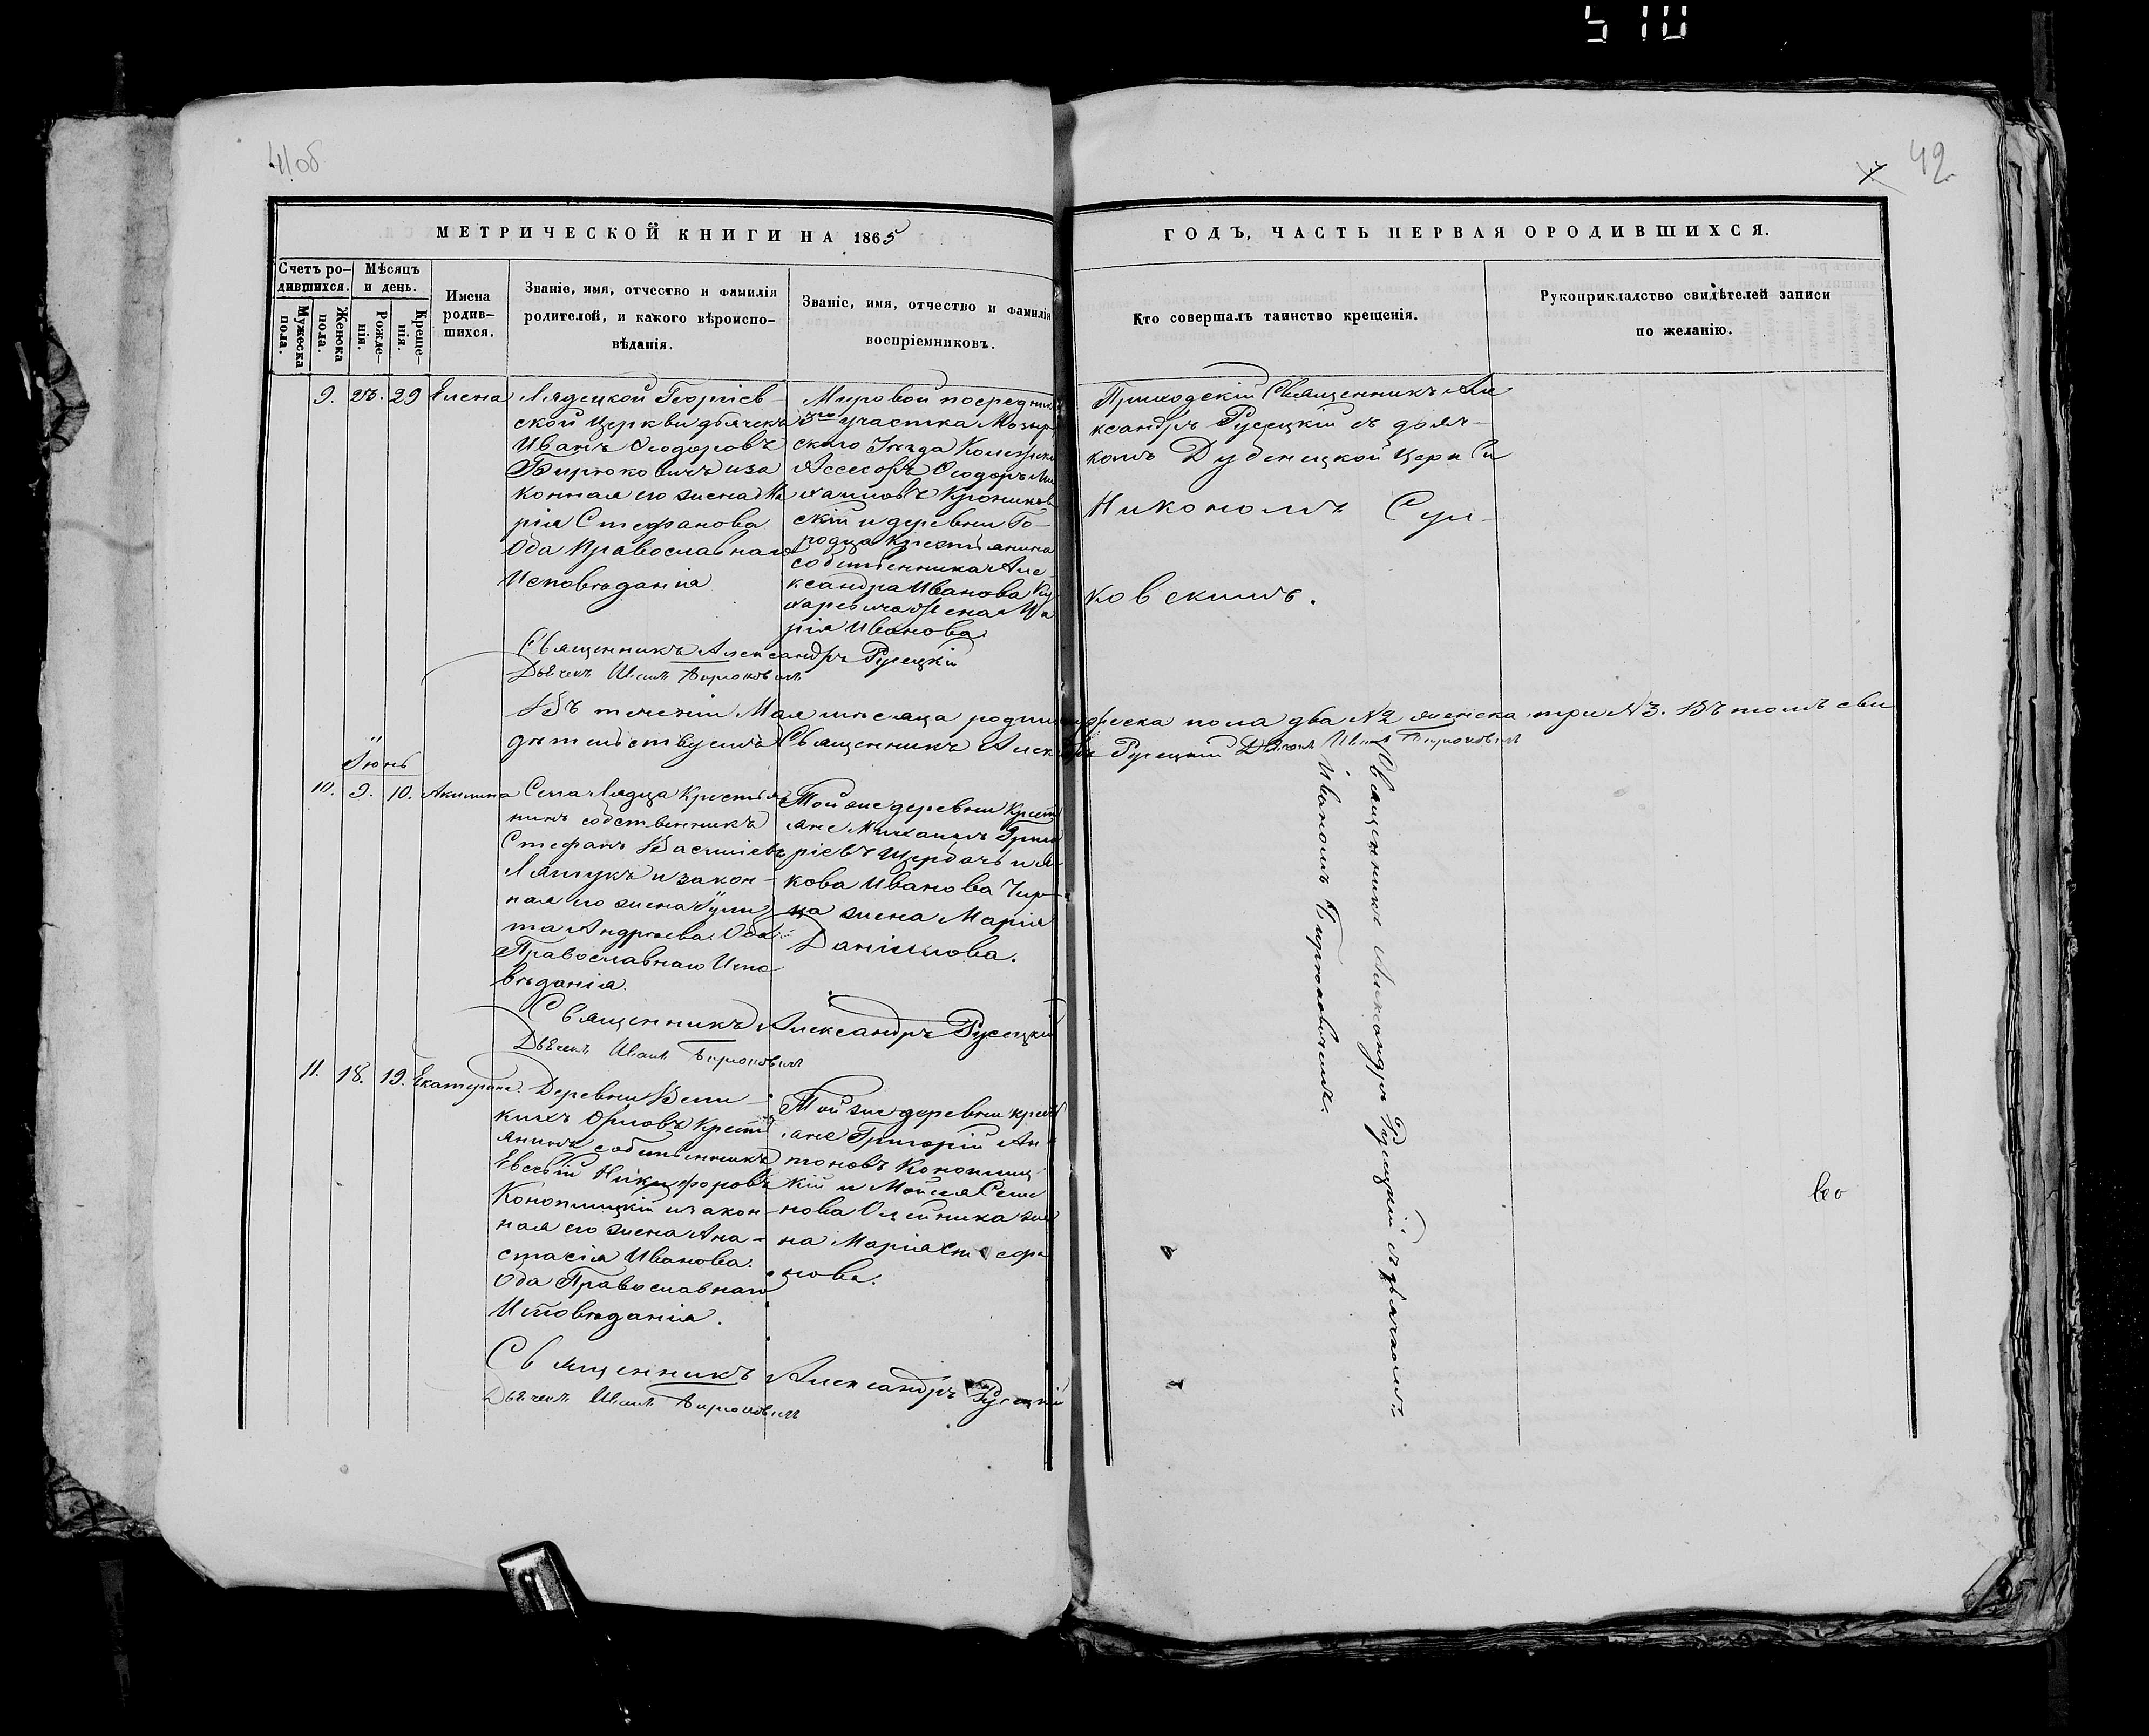 510
41об
42
МЕТРИЧЕСКОЙ КНИГИ НА 1865
ГОДЪ, ЧАСТЬ ПЕРВАЯ ОРОДИВШИХСЯ.
Счетъ ро-
дившихся.
Мѣсяцъ
и день.
Мужеска
пола.
Женска
пола.
Рожде-
нія.
Креще-
нія.
Имена
родив-
шихся.
Званіе, имя, отчество и фамилія
родителей, и какого вѣроиспо-
вѣданія.
Званіе, имя, отчество и фамилія
воспріемниковъ.
Кто совершалъ таинство крещенія.
Рукоприкладство свидѣтелей записи
по желанію.
9. 29 Елена
Лядецкой Георгіев-
ской Церкви дьячекъ
Иванъ Ѳеодоровъ
Бирюковичъ и за
конная его жена Ма
рія Стефанова
Оба Православнаго
Исповѣданія
Мировой посредникъ
3го участка Мозыр
скаго Уѣзда Колежскій
Ассесоръ Ѳеодоръ Ми
хаиловъ
скій и деревни Го-
родца крестьянина
собственника Але-
ксандра Иванова
жена Ма
рія Иванова
Приходскій Священникъ Але
ксандръ Русецкій съ дьяч-
комъ Дубенецкой Церкви
Никономъ Сул-
ковскимъ.
Священникъ Александръ Русецкій
Дьячекъ Иванъ Бирюковичъ
Въ теченіи Мая мѣсяца родилось мужеска пола два №2 женска три №3. Въ томъ сви
дѣтельствуемъ Священникъ Александръ Русецкій Дьячекъ Иванъ Бирюковичъ
Іюнь
10. 9. 10. Акилина
Села Лядца Крестья
нинъ собственникъ
Стефанъ Василіевъ
Ляшукъ и закон-
ная его жена Ули
та Андреева. Оба
Православнаго Испо
вѣданія.
Той же деревни Крестья
яне Михаилъ Григо
ріевъ Щербачъ и Я
кова Иванова
жена Марія
Даніилова.
Священникъ Александръ Русецкій
Дьячекъ Иванъ Бирюковичъ
Священникъ Александръ Русецкій съ дьячкомъ
Иваномъ Бирюковичемъ.
11. 18. 19. Екатерина.
Деревни Вели-
кихъ Орловъ Крестья
янинъ собственникъ
Евсевій Никифоровъ
Конопlицкій и закон-
ная его жена Ана-
стасія Иванова.
Оба Православнаго
Исповѣданія.
Той же деревни крестья
яне Григорій Ан
тоновъ Коноплиц
кій и Мойсея Семе
нова Олейника же
на Марія Стефа
нова.
Священникъ Александръ Русецкій
Дьячекъ Иванъ Бирюковичъ